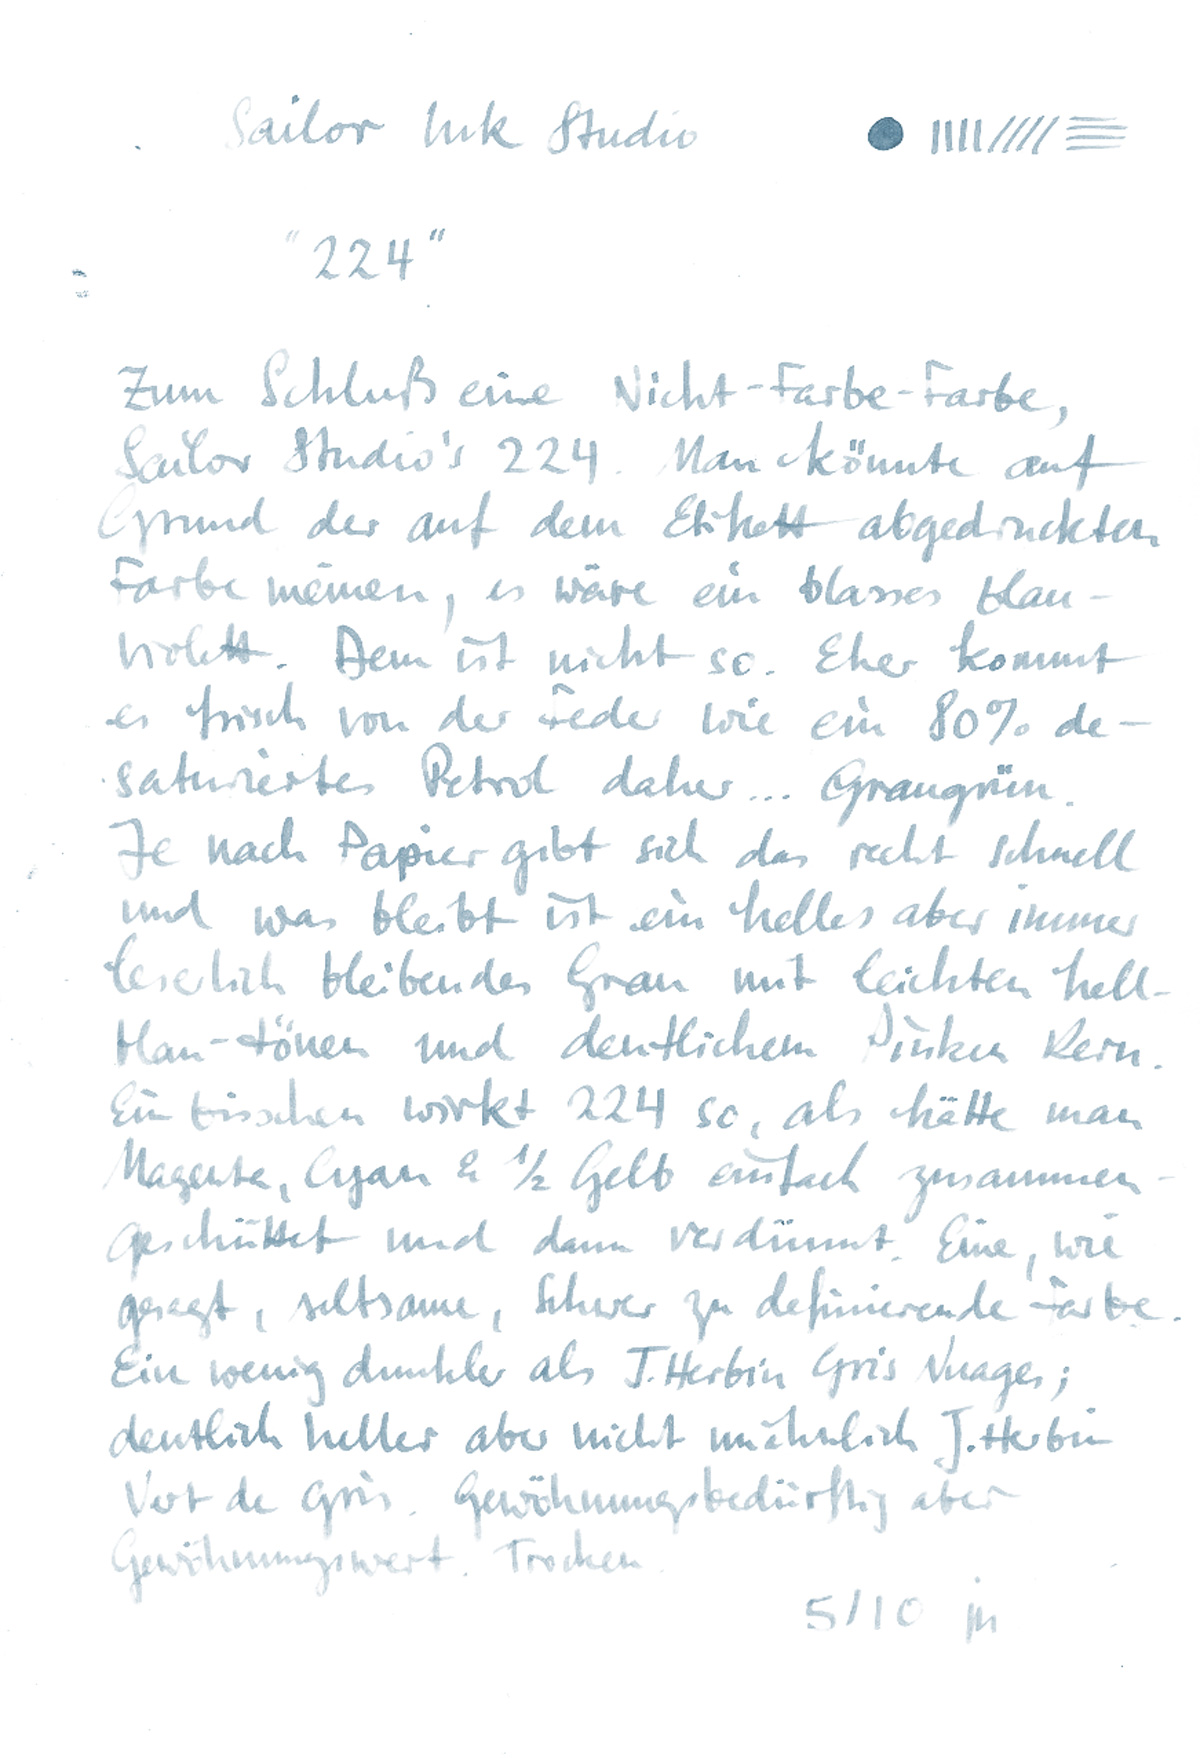 Sailor Ink Studio
"224"
Zum Schluß eine Nicht-Farbe-Farbe,
Sailor Studio's 224. Man könnte auf
Grund der auf dem Etikett abgedruckten
Farbe meinen, es wäre ein blasses blau-
violett. Dem ist nicht so. Eher kommt
es frisch von der Feder wie ein 80% de-
saturiertes Petrol daher... Graugrün.
Je nach Papier gibt sich das recht schnell
und was bleibt ist ein helles aber immer
leserlich bleibendes Grau mit leichten hell-
blau-tönen und deutlichem Pinken Kern.
Ein bisschen wirkt 224 so, als hätte man
Magenta, Cyan & ½ Gelb einfach zusammen-
geschüttet und dann verdünnt. Eine, wie
gesagt, seltsame, schwer zu definierende Farbe.
Ein wenig dunkler als J.Herbin Gris Nuages;
deutlich heller aber nicht unähnlich J.Herbin
Vert de Gris. Gewöhnungsbedürftig aber
Gewöhnungswert. Trocken
5/10